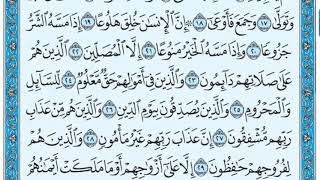 وَتَوَلَّىٰ ١٧ وَجَمَعَ فَأَوْعَىٰ ١٨ إِنَّ ٱلْإِنسَـٰنَ خُلِقَ هَلُوعًا ١٩ إِذَا مَسَّهُ ٱلشَّرُّ
جَزُوعًا ٢٠ وَإِذَا مَسَّهُ ٱلْخَيْرُ مَنُوعًا ٢١ إِلَّا ٱلْمُصَلِّينَ ٢٢ ٱلَّذِينَ هُمْ
عَلَىٰ صَلَاتِهِمْ دَآئِمُونَ ٢٣ وَٱلَّذِينَ فِىٓ أَمْوَٰلِهِمْ حَقٌّ مَّعْلُومٌ ٢٤ لِّلسَّآئِلِ
وَٱلْمَحْرُومِ ٢٥ وَٱلَّذِينَ يُصَدِّقُونَ بِيَوْمِ ٱلدِّينِ ٢٦ وَٱلَّذِينَ هُم مِّنْ عَذَابِ
رَبِّهِم مُّشْفِقُونَ ٢٧ إِنَّ عَذَابَ رَبِّهِمْ غَيْرُ مَأْمُونٍ ٢٨ وَٱلَّذِينَ هُمْ
لِفُرُوجِهِمْ حَـٰفِظُونَ ٢٩ إِلَّا عَلَىٰٓ أَزْوَٰجِهِمْ أَوْ مَا مَلَكَتْ أَيْمَـٰنُهُمْ